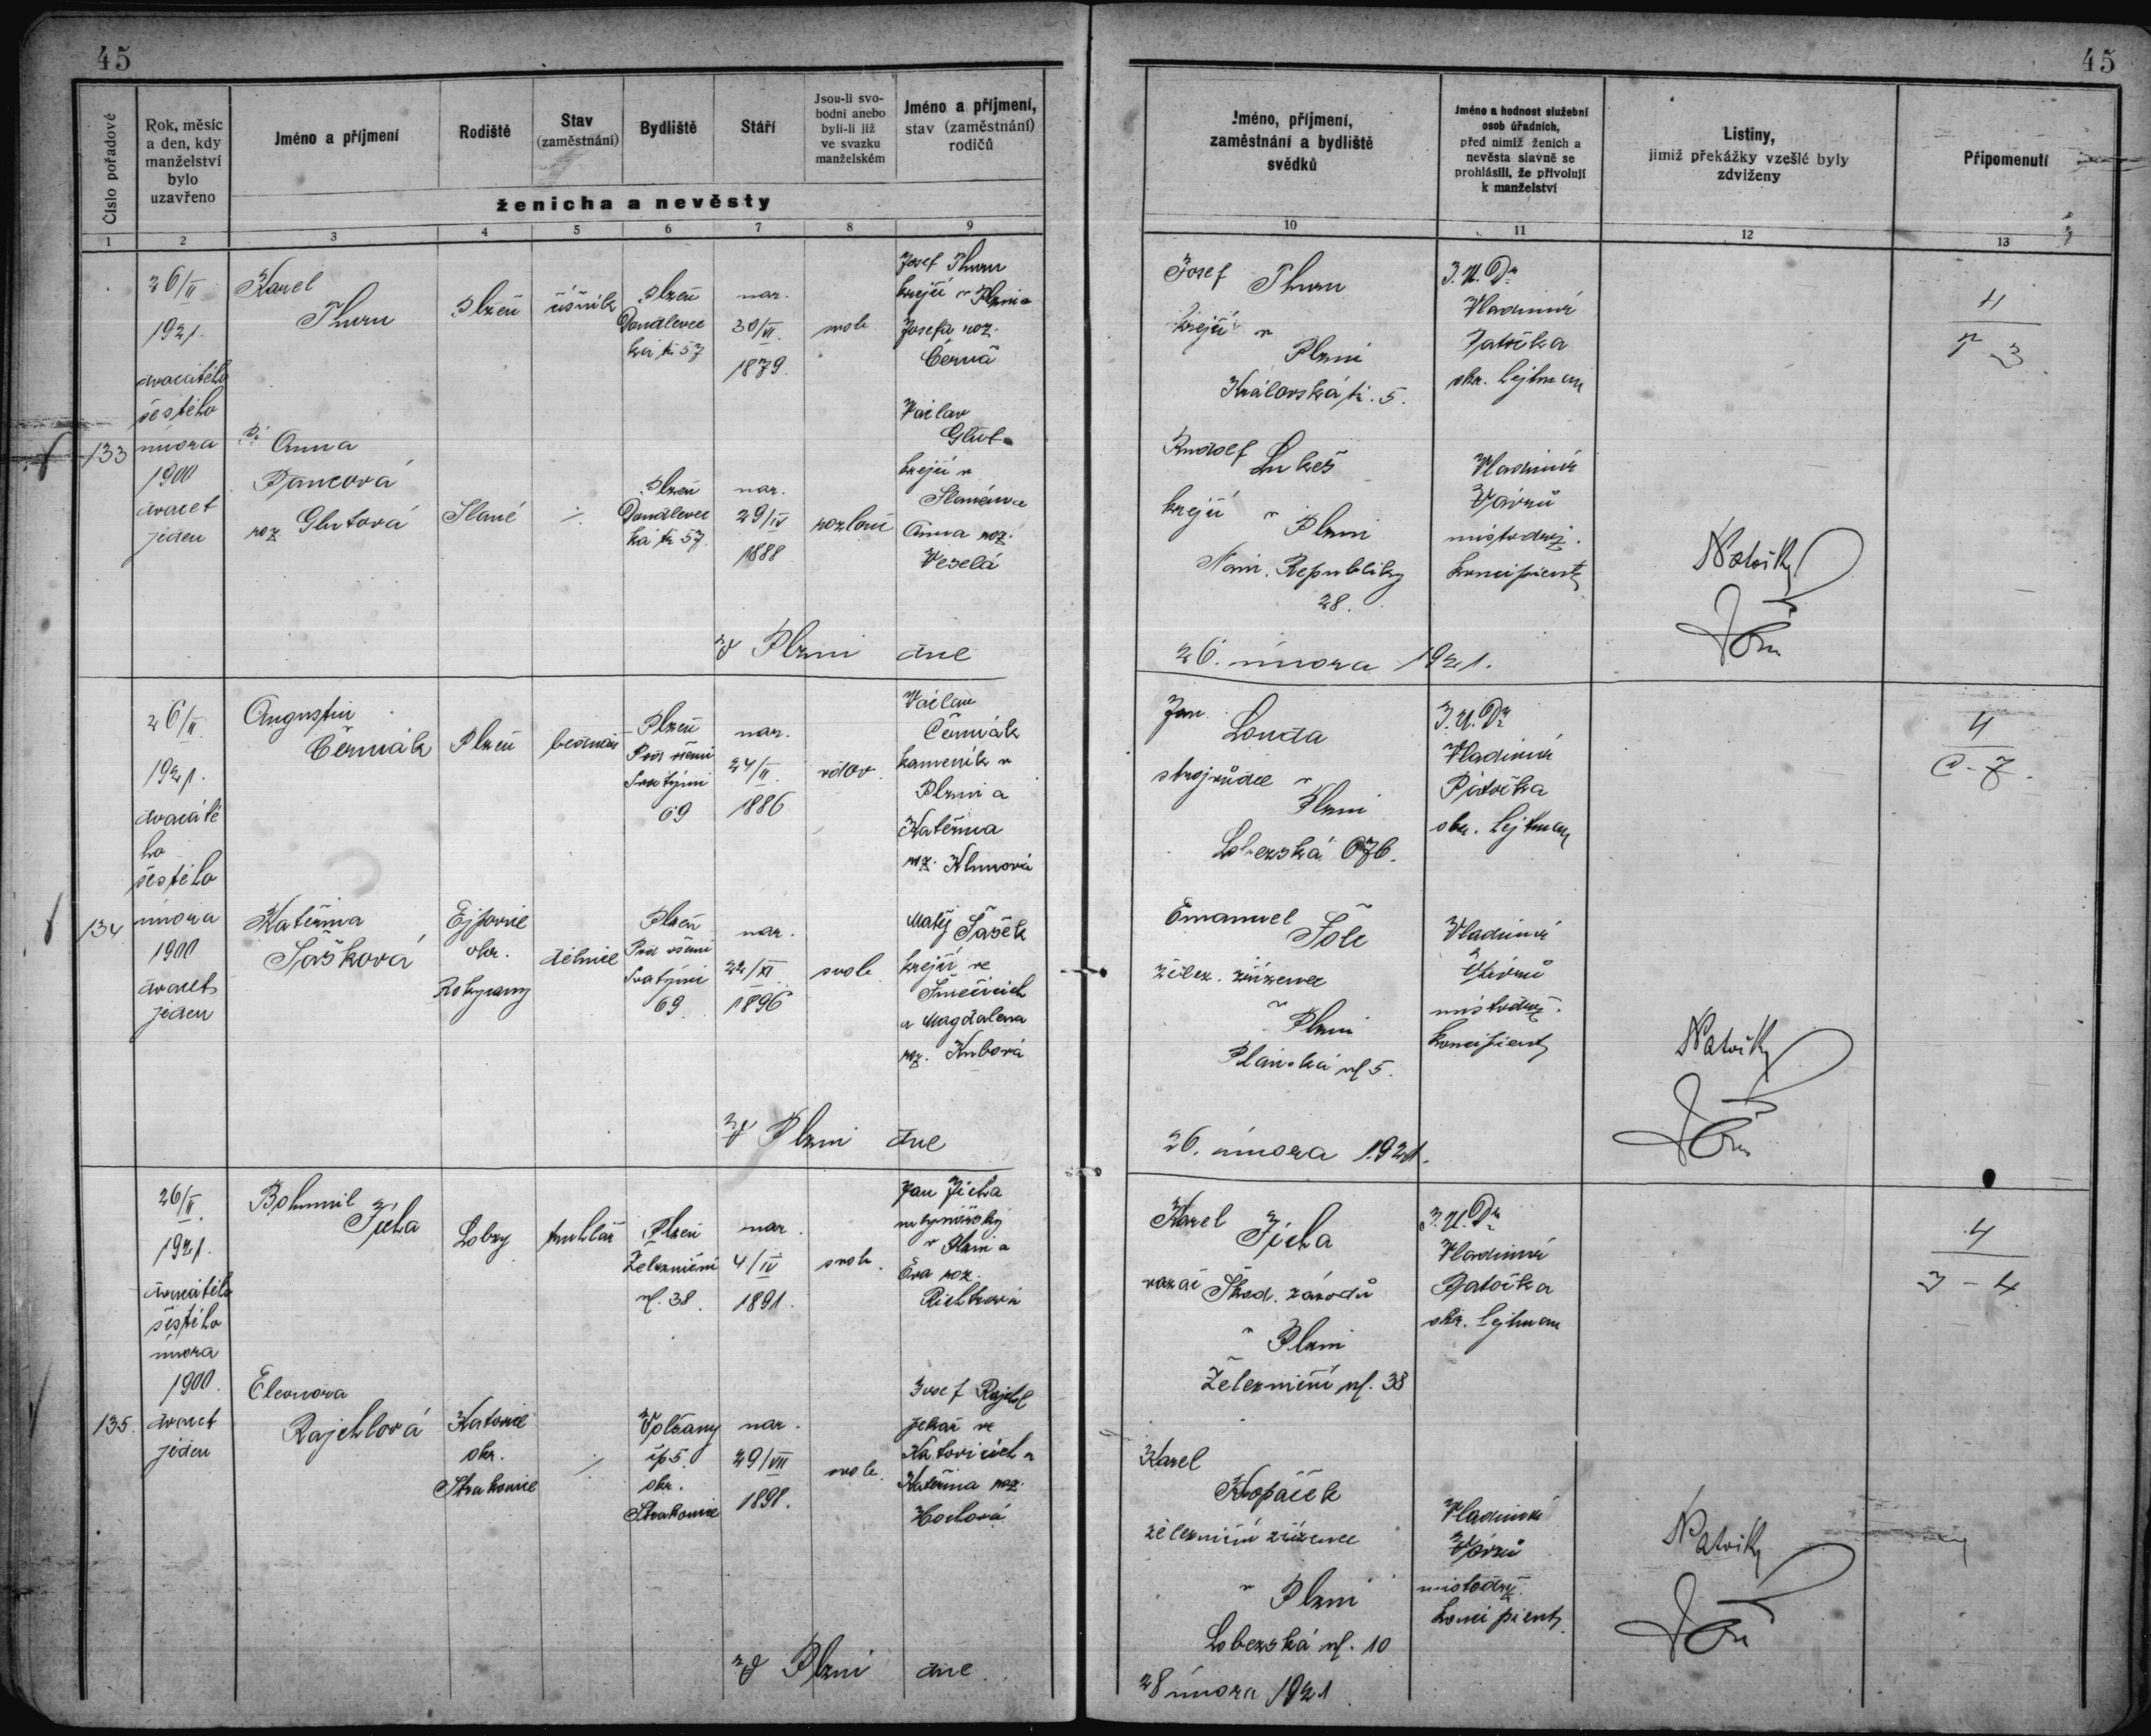 45
45
Číslo pořadové
Rok, měsíc
a den, kdy
manželství
bylo
uzavřeno
Jméno a příjmení
Rodiště
Stav
(zaměstnání)
Bydliště
Stáří
Jsou-li svo-
bodni anebo
byli-li již
ve svazku
manželském
Jméno a příjmení,
stav (zaměstnání)
rodičů
ženicha a nevěsty
Jméno, příjmení,
zaměstnání a bydliště
svědků
Jméno a hodnost služební
osob úřadních,
před nimiž ženich a
nevěsta slavně se
prohlásili, že přivolují
k manželství
Listiny,
jimiž překážky vzešlé byly
zdviženy
Připomenutí
1 2 3 4 5 6 7 8 9
10 11 12 13
133
26/II
1921.
dvacátého
šestého
února
1900
dvacet
jeden
Karel
Thuru
Plzeň
číšník
Plzeň
Doudlevec
ká tř. 57
nar.
30/VI.
1879.
svob.
Josef Thuru
krejčí v Plzni a
Josefa roz.
Černá
Anna
Pancová
roz. Glutová
Slané
Plzeň
Doudlevec
ká tř. 57.
nar.
29/IV
1888
rozlouč
Václav
Glut
krejčí v
Slaném a
Anna roz.
Veselá
V Plzni dne
Josef Thuru
krejčí v
Plzni
Královská tř. 5.
Rudolf
Lukeš
krejčí v
Plzni
Nám. Republiky
28.
26. února 1921.
J. U. Dr
Vladimír
Patočka
okr. hejtman
Vladimír
Vávrů
místodrž.
koncipient
134
26/II.
1921.
dvacáté
ho
šestého
února
1900
dvacet
jeden
Augustin
Černák
Plzeň
bednář
Plzeň
Pod všemi
Svatými
69
nar.
24/II.
1886
vdov.
Václav
Černák
kameník v
Plzni a
Kateřina
roz. Klunová
Kateřina
Sašková
Ejpovic
okr.
Rokycany
dělnice
Plzeň
Pod všemi
Svatými
69
nar.
22/XI
1896
svob
Matěj Šašek
krejčí ve
a Magdalena
roz. Kubová
V Plzni dne
Jan
Louda
strojvůdce v
Plzni
Lobezská 676.
Emanuel
Šole
želez. zřízenec
v
Plzni
Plánská ul 5.
26. února 1921.
J. U. Dr
Vladimír
Patočka
okr. hejtman
Vladimír
Vávrů
místodrž.
koncipient
4
135.
26/II.
1921.
dvacátého
šestého
února
1900.
dvacet
jeden
Bohumil
Jícha
Lobzy
truhlář
Plzeň
Železniční
ul. 38.
nar.
4/IV
1891.
svob.
Jan Jícha
v Plzni a
Eva roz.
Eleonora
Rajchlová
Katovic
okr.
Strakonic
Volšany
čp 5.
okr.
Strakonic
nar.
29/VII
1898.
svob.
Josef Rajchl
pekař ve
Katovicích a
Kateřina roz.
Hodová
V Plzni dne
Karel
Jícha
Škod. závodů
v Plzni
Železniční ul. 38
Karel
Kopáček
železniční zřízenec
v Plzni
Lobezská ul. 10
28 února 1921
J. U. Dr
Vladimír
Patočka
okr. hejtman
Vladimír
Vávrů
místodrž.
koncipient
4
3 - 4